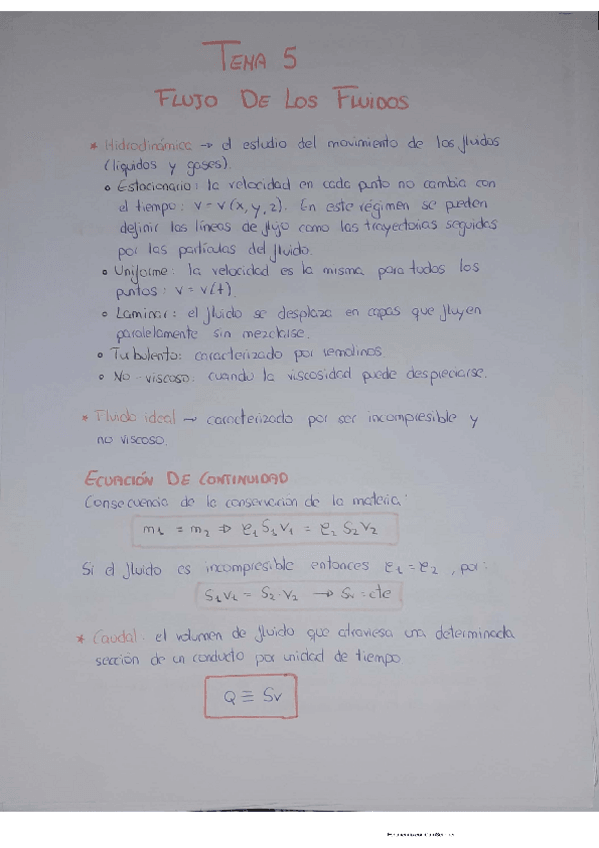 TEMA 5
FLUJO DE LOS FLUIDOS
* Hidrodinámica → el estudio del movimiento de los fluidos
(líquidos y gases).
• Estacionario: la velocidad en cada punto no cambia con
el tiempo: v = v(x, y, z). En este régimen se pueden
definir las líneas de flujo como las trayectorias seguidas
por las partículas del fluido.
• Uniforme: la velocidad es la misma para todos los
puntos: v = v(t).
• Laminar: el fluido se desplaza en capas que fluyen
paralelamente sin mezclarse.
• Turbulento: caracterizado por remolinos.
• No-viscoso: cuando la viscosidad puede despreciarse.
* Fluido ideal → caracterizado por ser incompresible y
no viscoso.
ECUACIÓN DE CONTINUIDAD
Consecuencia de la conservación de la materia:
m1 = m2 ⇒ ρ1 S1 V1 = ρ2 S2 V2
Si el fluido es incompresible entonces ρ1 = ρ2, por:
S1 V1 = S2 · V2 → Sv = cte
* Caudal: el volumen de fluido que atraviesa una determinada
sección de un conducto por unidad de tiempo
Q ≡ Sv